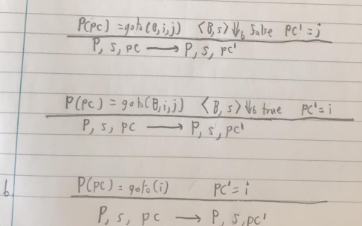 P(pc) = goto(B,i,j) ⟨B,s⟩ ⇓b false pc' = j
P, s, pc ⟶ P, s, pc'
P(pc) = goto(B,i,j) ⟨B,s⟩ ⇓b true pc' = i
P, s, pc ⟶ P, s, pc'
b P(pc) = goto(i) pc' = i
P, s, pc → P, s, pc'